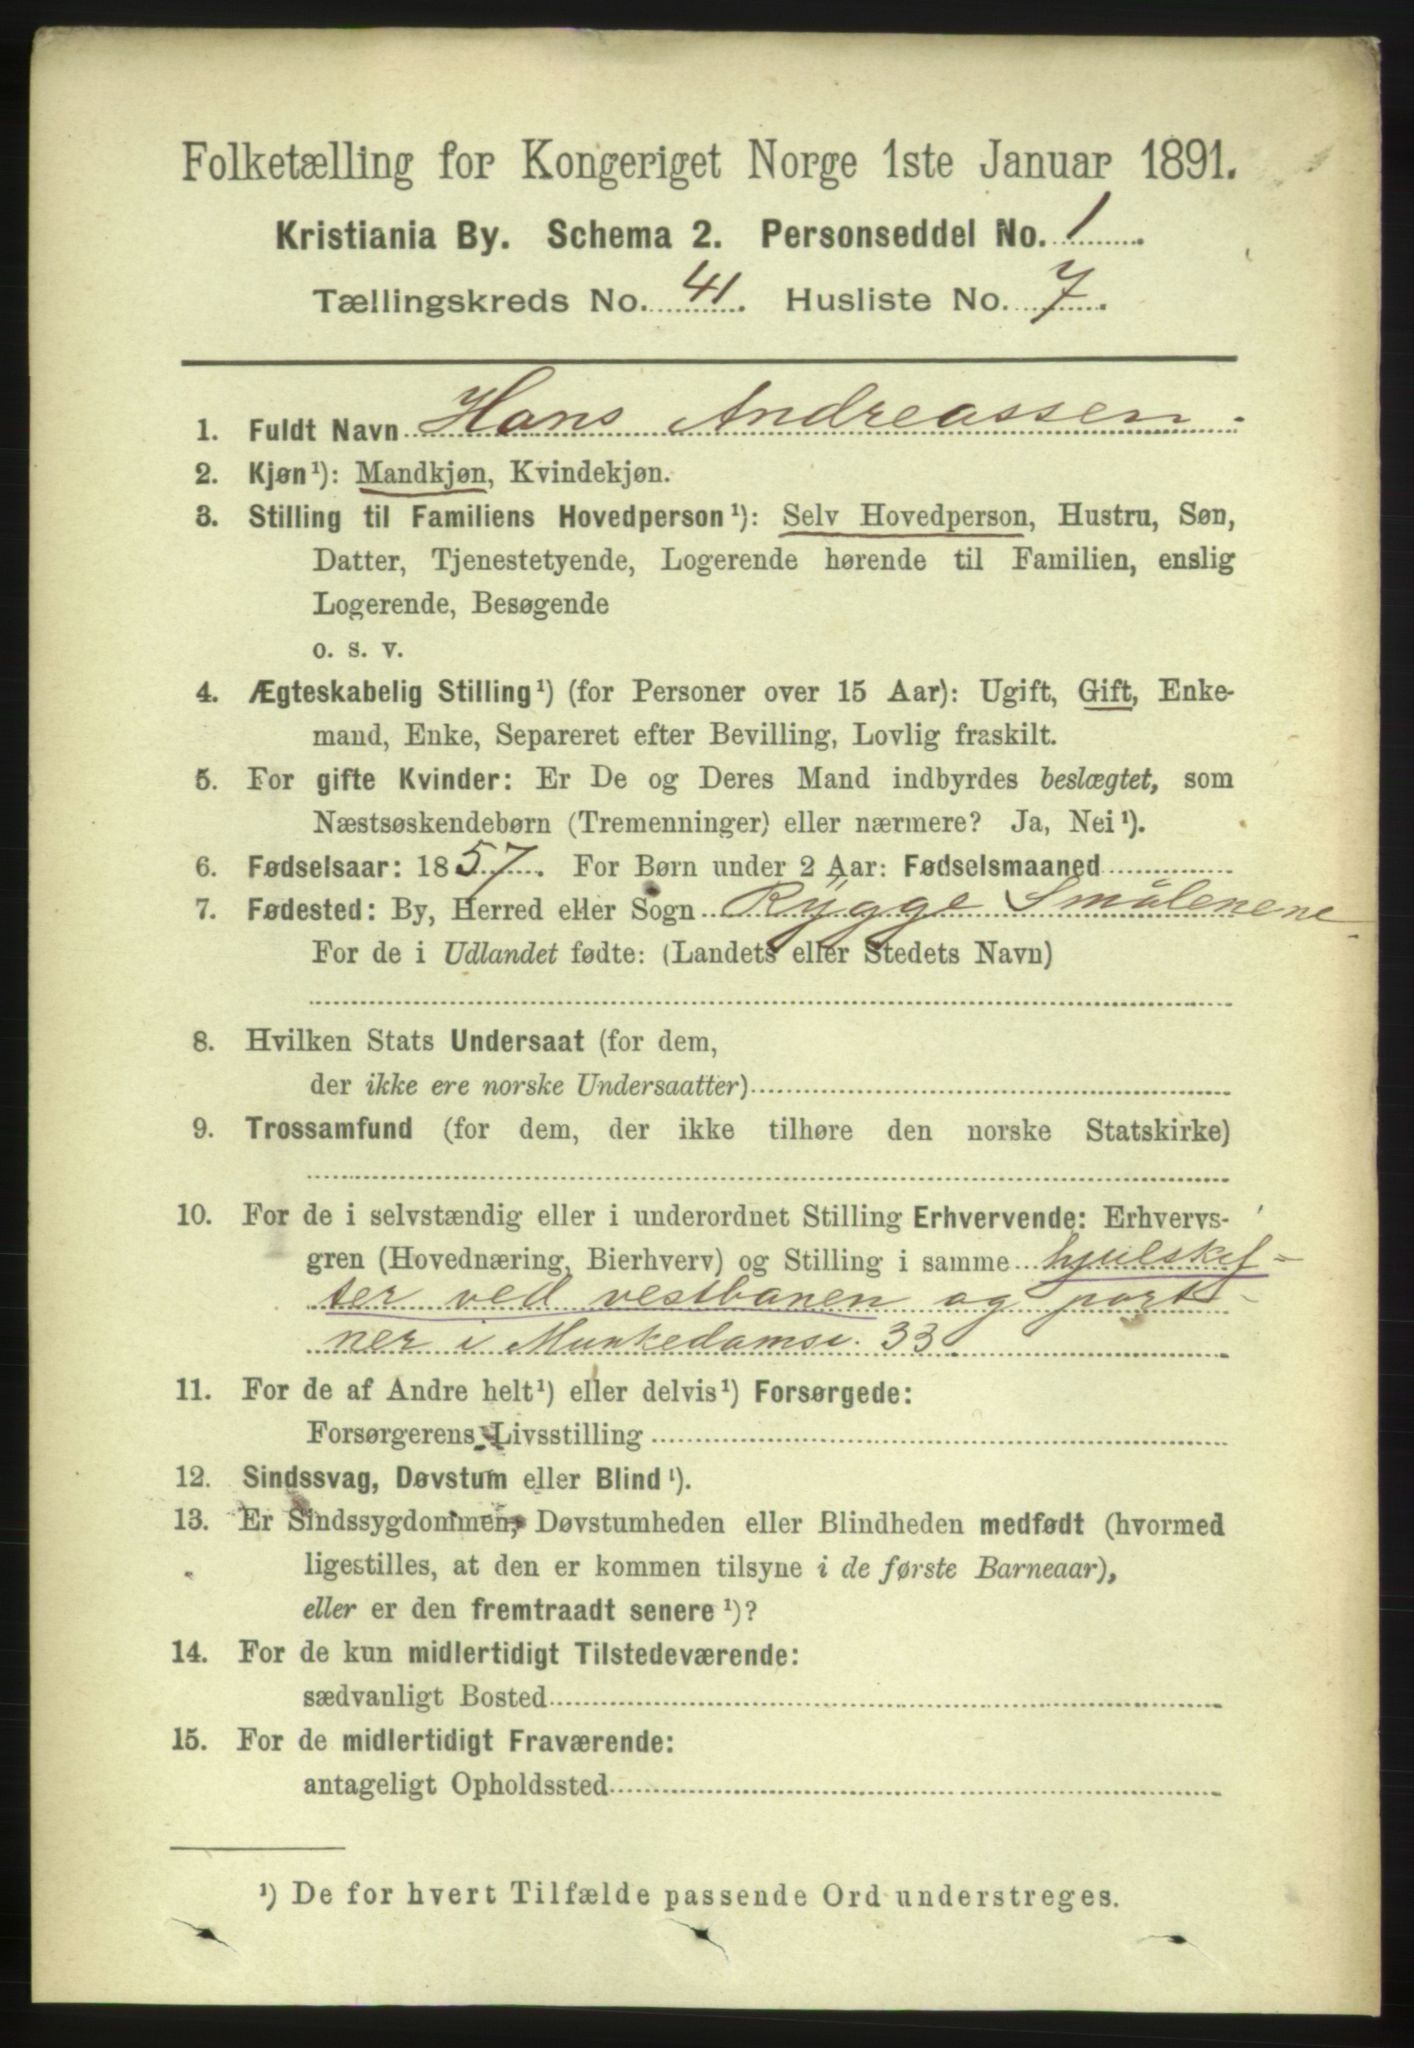 Folketælling for Kongeriget Norge 1ste Januar 1891.
Kristiania By. Schema 2. Personseddel No. 1.
Tællingskreds No. 41. Husliste No. 7.
1. Fuldt Navn Hans Andreassen.
2. Kjøn¹): Mandkjøn, Kvindekjøn.
3. Stilling til Familiens Hovedperson¹): Selv Hovedperson, Hustru, Søn,
Datter, Tjenestetyende, Logerende hørende til Familien, enslig
Logerende, Besøgende
o. s. v.
4. Ægteskabelig Stilling¹) (for Personer over 15 Aar): Ugift, Gift, Enke-
mand, Enke, Separeret efter Bevilling, Lovlig fraskilt.
5. For gifte Kvinder: Er De og Deres Mand indbyrdes beslægtet, som
Næstsøskendebørn (Tremenninger) eller nærmere? Ja, Nei¹).
6. Fødselsaar: 1857. For Børn under 2 Aar: Fødselsmaaned
7. Fødested: By, Herred eller Sogn Rygge Smålenene.
For de i Udlandet fødte: (Landets eller Stedets Navn)
8. Hvilken Stats Undersaat (for dem,
der ikke ere norske Undersaatter)
9. Trossamfund (for dem, der ikke tilhøre den norske Statskirke)
10. For de i selvstændig eller i underordnet Stilling Erhvervende: Erhvervs-
gren (Hovednæring, Bierhverv) og Stilling i samme hjulskif-
ter ved vestbanen og port-
ner i Munkedamsv. 33.
11. For de af Andre helt¹) eller delvis¹) Forsørgede:
Forsørgerens Livsstilling
12. Sindssvag, Døvstum eller Blind¹).
13. Er Sindssygdommen, Døvstumheden eller Blindheden medfødt (hvormed
ligestilles, at den er kommen tilsyne i de første Barneaar),
eller er den fremtraadt senere¹)?
14. For de kun midlertidigt Tilstedeværende:
sædvanligt Bosted
15. For de midlertidigt Fraværende:
antageligt Opholdssted
¹) De for hvert Tilfælde passende Ord understreges.